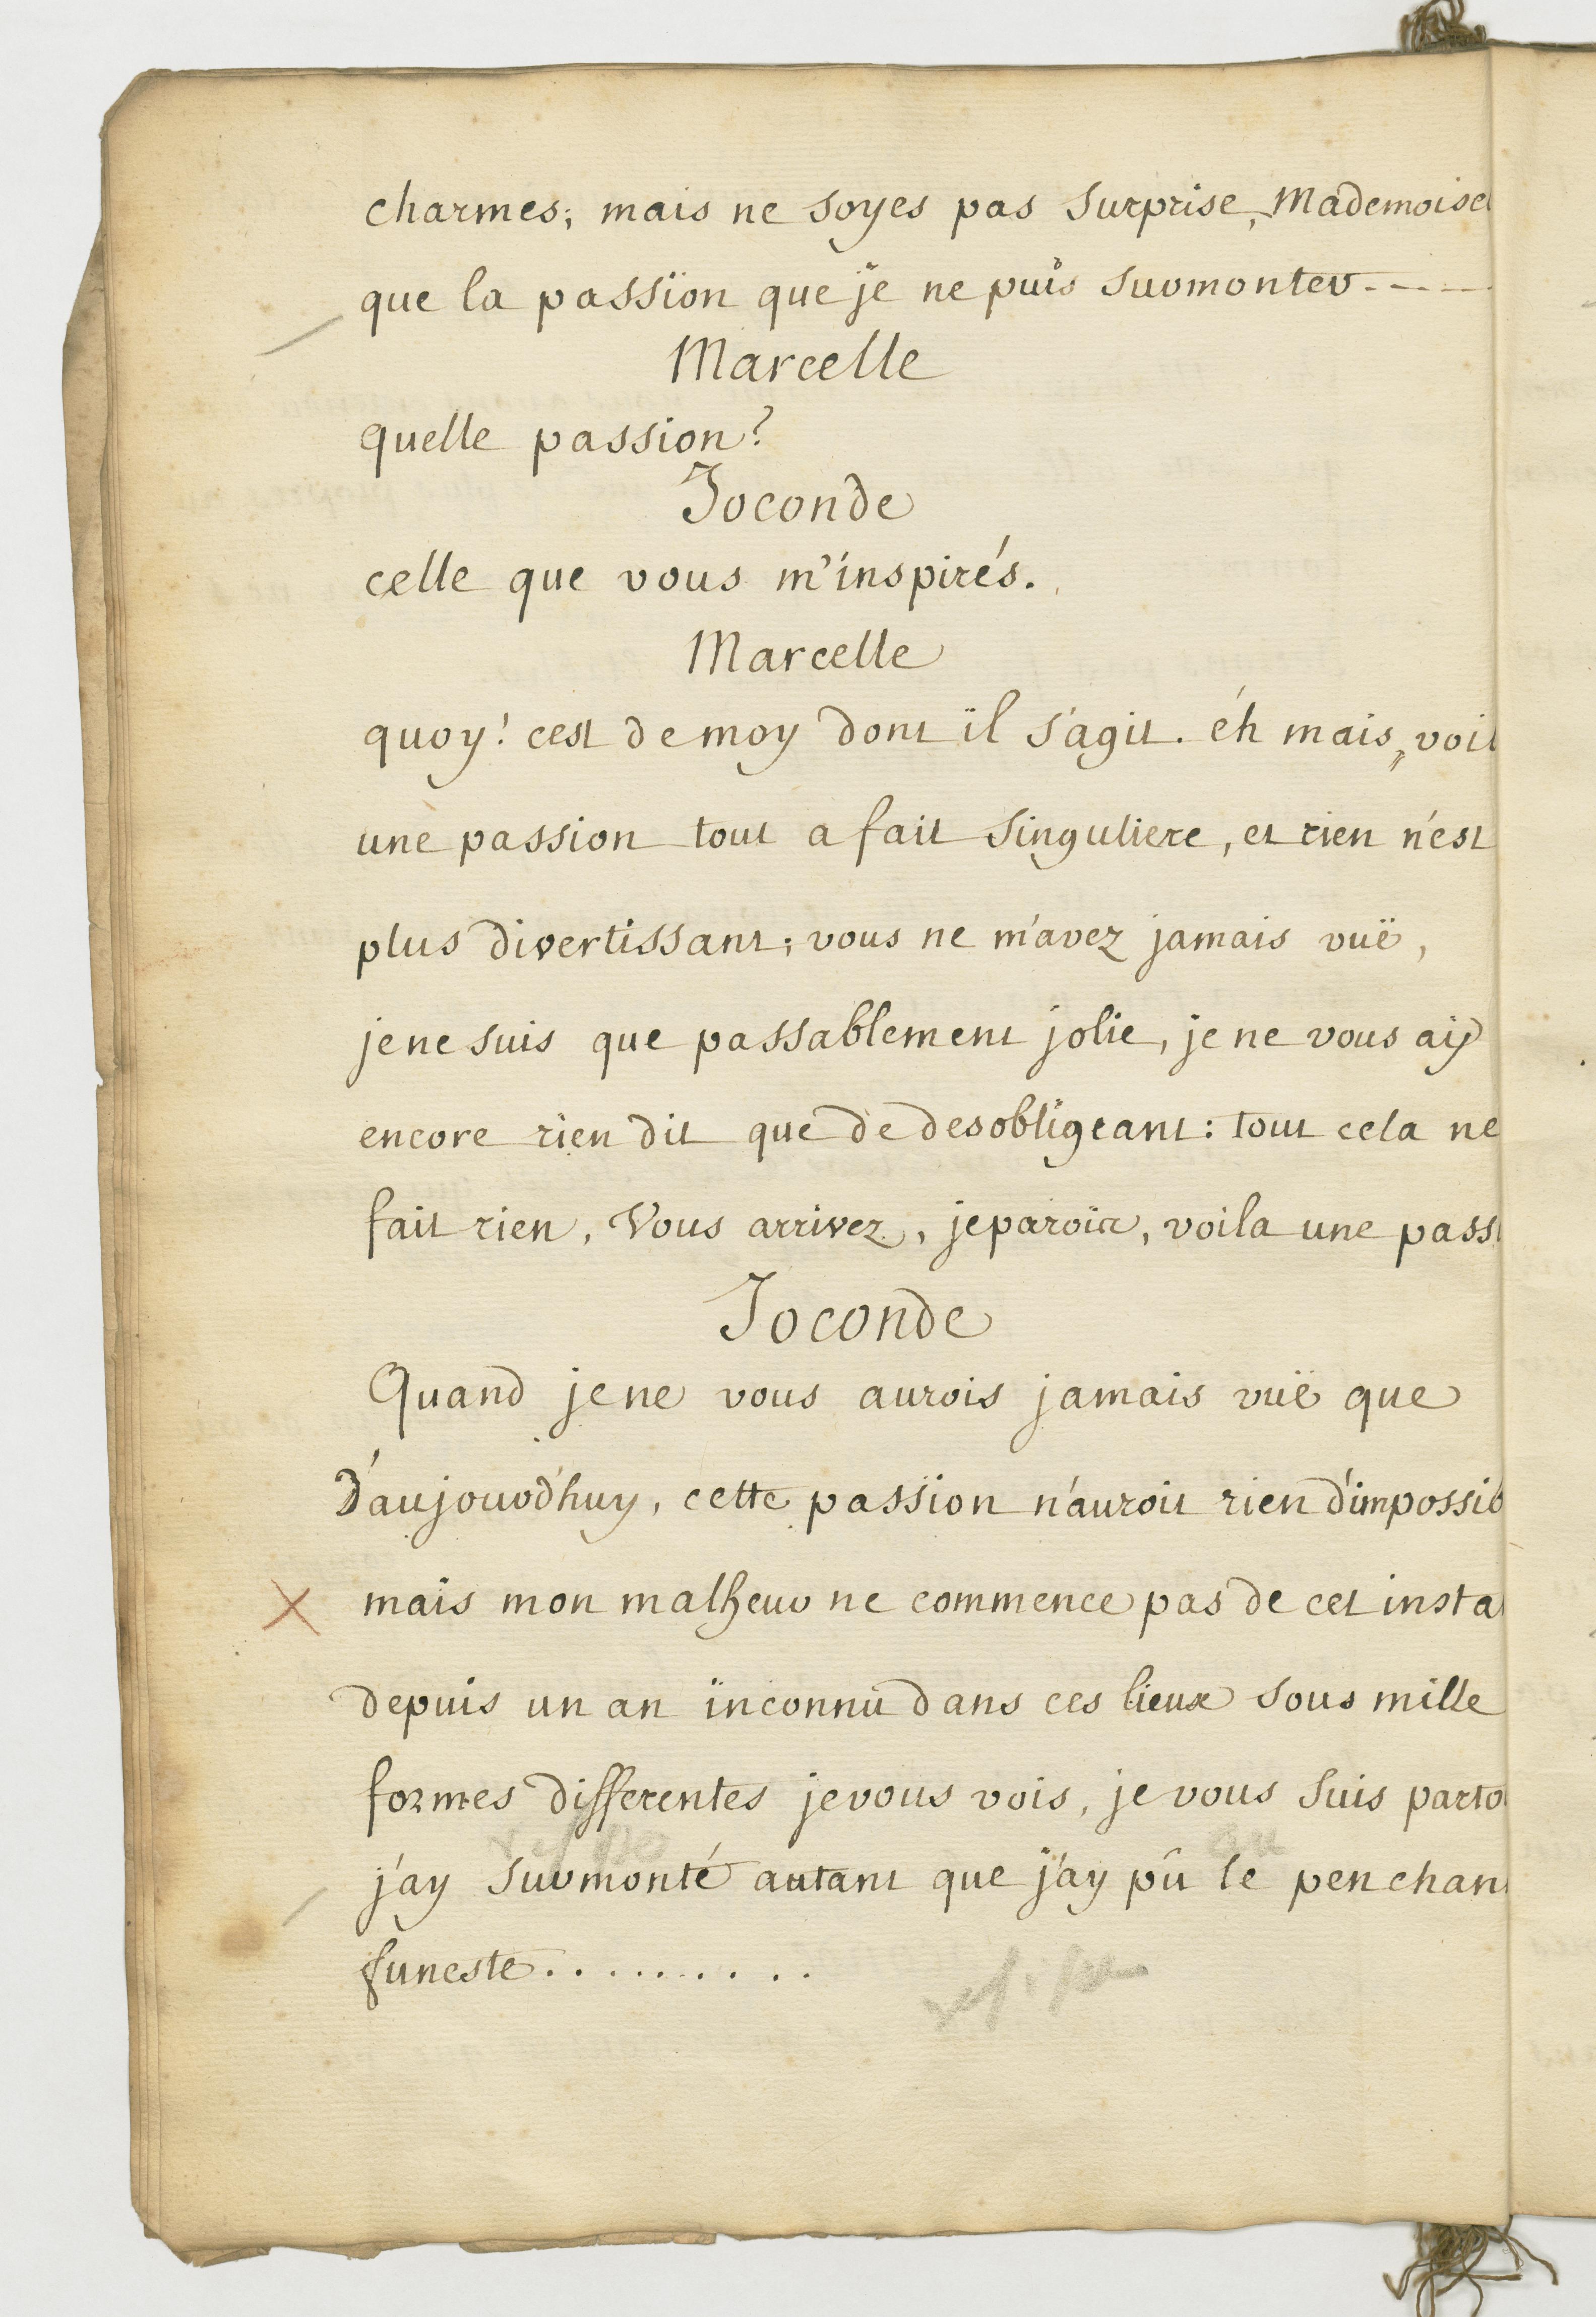 charmes; mais ne soyes pas surprise, Mademoisel
que la passion que je ne puis surmonter----
Marcelle
quelle passion?
Joconde
celle que vous m'inspirés.
Marcelle
quoy! c'est de moy dont il s'agit. éh mais, voil
une passion tout a fait singuliere, et rien n'est
plus divertissant; vous ne m'avez jamais vuë,
je ne suis que passablement jolie, je ne vous ay
encore rien dit que de desobligeant: tout cela ne
fait rien, Vous arrivez, je parois, voila une passi
Joconde
Quand je ne vous aurois jamais vuë que
d'aujourd'huy, cette passion n'auroit rien d'impossib
mais mon malheur ne commence pas de cet insta
depuis un an inconnu dans ces lieux sous mille
formes differentes je vous vois, je vous suis parto
j'ay surmonté autant que j'ay pû le penchan
funeste..........